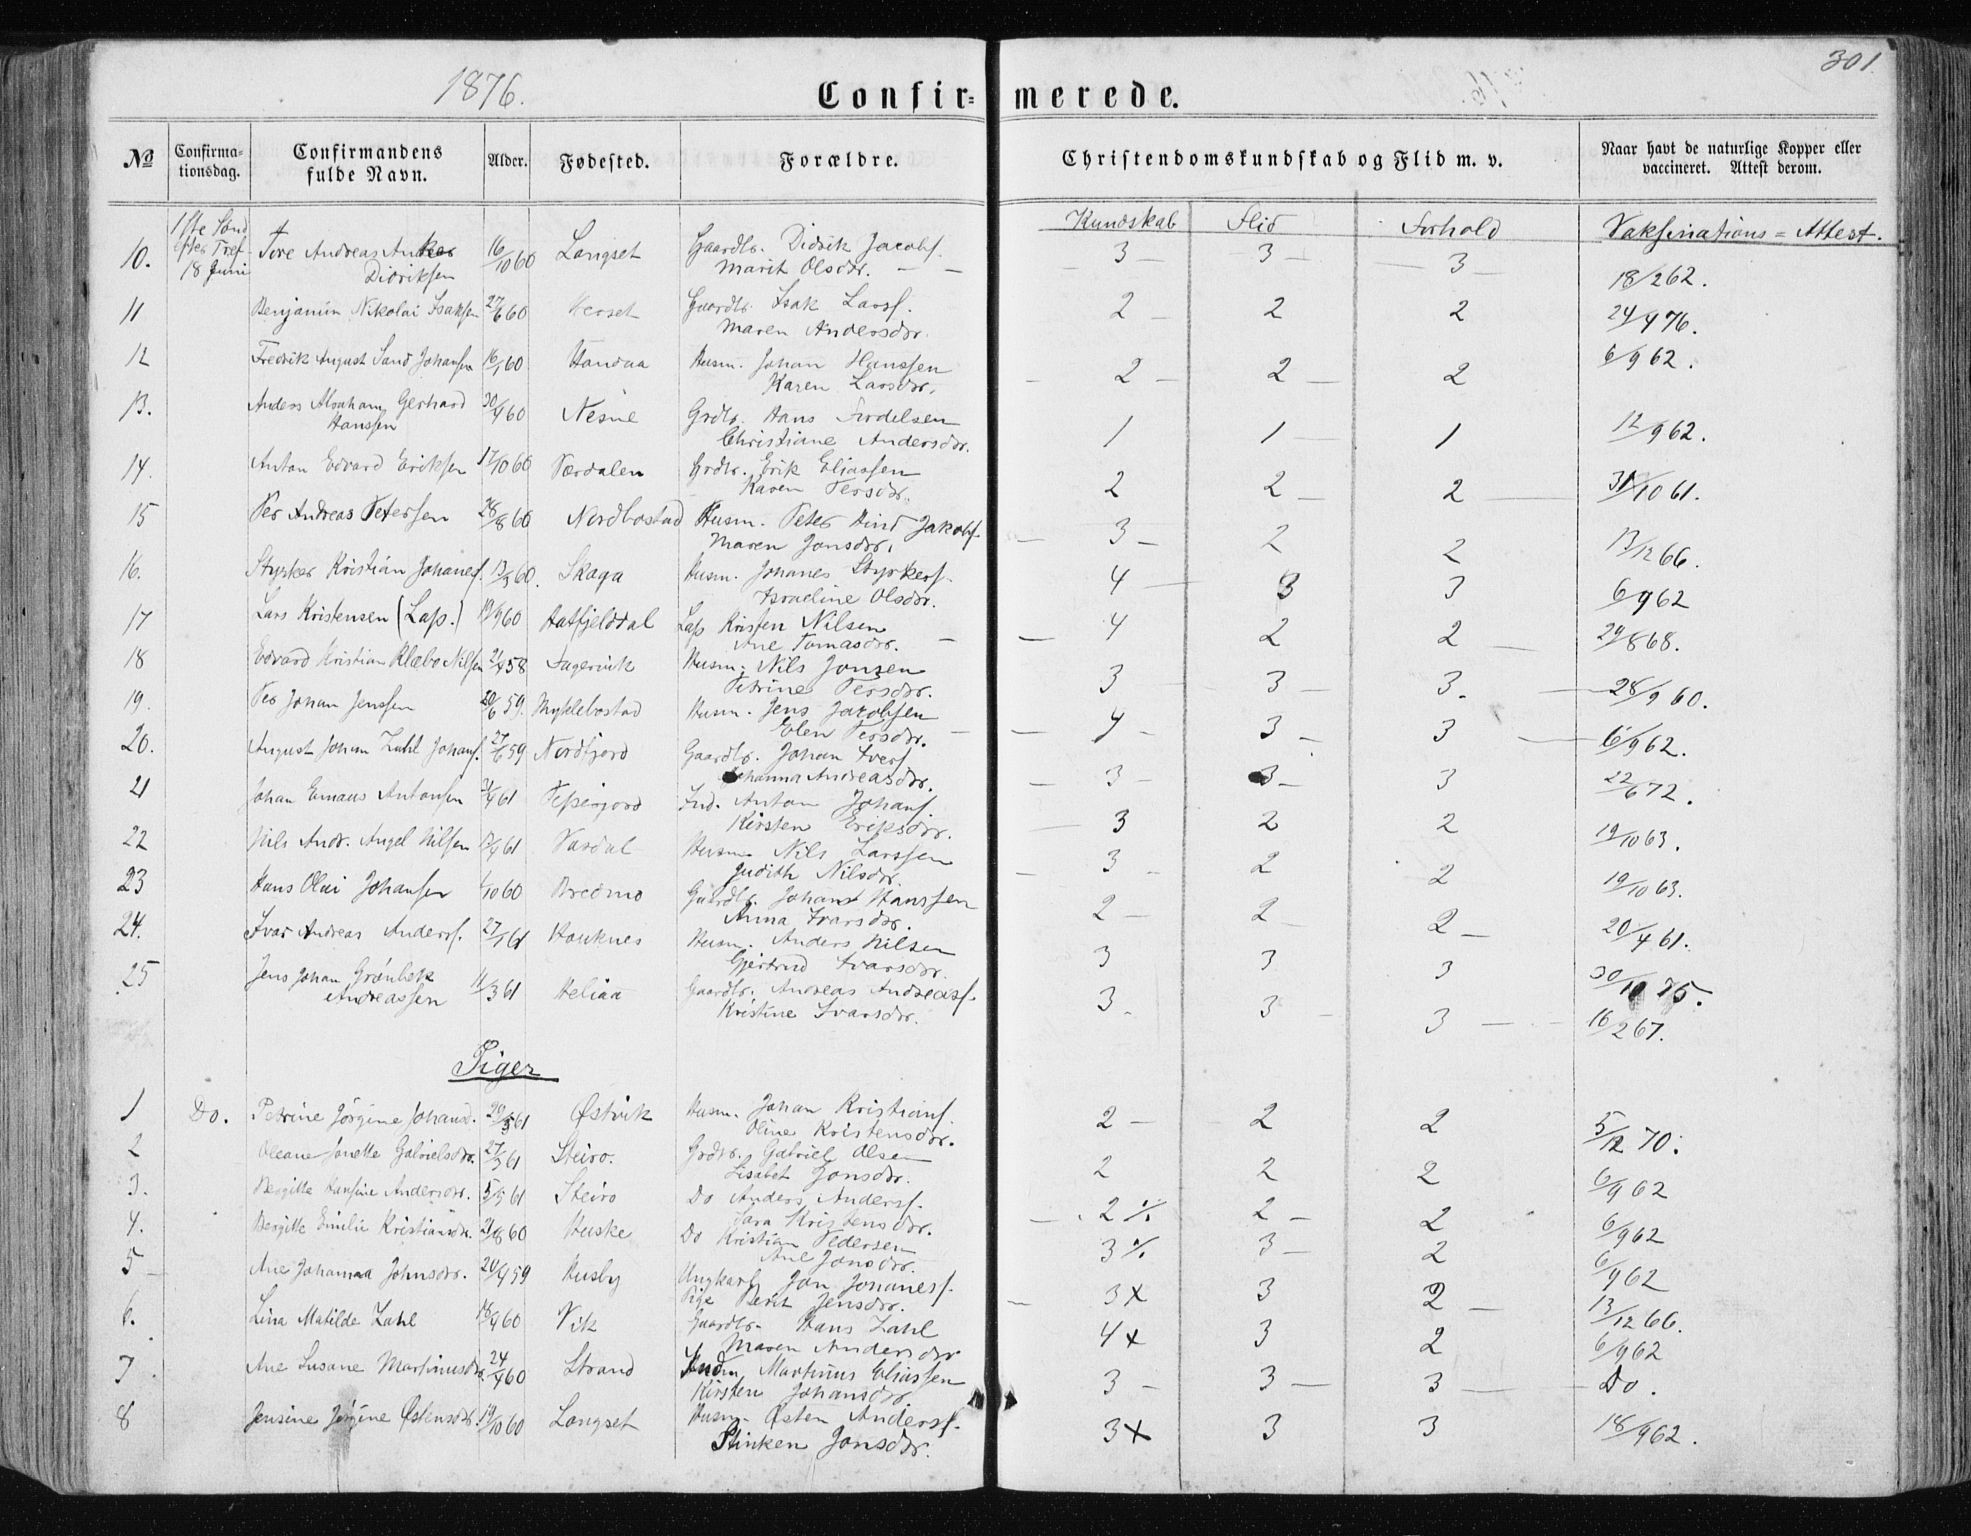 1876.
Confir=
merede.
301.
No
Confirma-
tionsdag.
Confirmandens
fulde Navn.
Alder.
Fødested.
Forældre.
Christendomskundskab og Flid m. v.
Naar havt de naturlige Kopper eller
vaccineret. Attest derom.
Kundskab Flid Forhold Vaksinations = Attest.
1ste Sønd
efter Tref
18 Juni
10. Tore Andreas 16/10 60 Langset Gaardbr. Didrik Jacobs. 3 3 3 18/2 62.
Didriksen Marit Olsdr.
11 Benjamin Nikolai Isaksen 27/6 60 Herset Gaardbr. Isak Larss. 2 2 2 24/4 76.
Maren Andersdr.
12 Fredrik August Sand Johansen 16/1 60 Handaa Husm. Johan Hanssen 2 2 2 6/9 62.
Karen Larsdr.
13. Anders Abraham Gerhard 30/4 60 Nesne Grdbr. Hans 1 1 1 12/9 62.
Hanssen Christiane Andersdr.
14. Anton Edvard Eriksen 17/10 60 Værdalen Grdbr. Erik Eliassen 2 2 2 31/10 61.
Karen Persdr.
15 Per Andreas Petersen 28/8 60 Nordbostad Husm. Peter Hind Jakobs. 3 2 2 13/12 66.
Maren Jonsdr.
16. Styrker Kristian Johaness. 13/3 60. Skaga Husm. Johanes Styrkers. 4 3 3 6/9 62
Israeline Olsdr.
17 Lars Kristensen (Lap.) 19/9 60 Hatfjelddal Lap Kristen Nilsen 4 2 2 29/8 68.
Ane Tomasdr.
18 Edvard Kristian Klæbo Nilsen 21/4 58 Fagervik Husm. Nils Jonsen 3 3 3. 28/9 60.
Petrine Persdr.
19. Per Johan Jenssen 20/6 59. Myklebostad Husm. Jens Jacobsen 4 3 3 6/9 62.
Elen Persdr.
20. August Johan Zahl Johans. 27/6 59 Nordfjord Gaardbr. Johan Ivers. 3 3 3 22/6 72.
Johanna Andreasdr.
21 Johan Emaus Antonsen 3/4 61 Ind. Anton Johans. 3 2 2 19/10 63.
Kirsten Eriksdr.
22 Nils Andr. Angel Nilsen 61 Husm. Nils Larssen 3 2 2 19/10 63.
Judith Nilsdr.
23 Hans Olai Johansen 1/10 60 Bredmo Gaardbr. Johan Hanssen 2 2 2 20/4 61.
Anna Ivarsdr.
24. Ivar Andreas Anderss. 27/1 61 Hauknes Husm. Anders Nilsen 3 3 3 75.
Gjertrud Ivarsdr.
25 Jens Johan Grønbek 11/3 61 Heliaa Gaardbr. Andreas Andreass. 3 3 3 16/2 67.
Andreassen Kristine Ivarsdr.
Piger
1 Do. Petrine Jørgine Johansd. 29/3 61 Østvik Husm. Johan Kristians. 2 2 2 5/12 70.
Oline Kristensdr.
2 Oleane Jonette Gabrielsdr. 27/3 61 Steiro. Grdbr. Gabriel Olsen 2 2 2 6/9 62
Lisabet Jonsdr.
3. Bergitte Hansine Andersdr. 5/5 61 Steiro Do Anders Anderss. 2 ⁒ 2 2 6/9 62
Sara Kristensdr.
4. Bergitte Emilie Kristiansdr. 21/8 60 Huske Do Kristian Pedersen 3 ⁒ 3 2 6/9 62
Ane Jonsdr.
5 Ane Johanna Johnsdr. 20/4 59 Husby Ungkarl Jon Johaness. 3 x 3 2 13/12 66.
Pige Berit Jensdr.
6. Lina Matilde Zahl 18/4 60 Vik Gaardbr. Hans Zahl 4 x 3 2 6/9 62
Maren Andersdr
7 Ane Susane Martinusdr. 24/4 60 Strand Martinus Eliassen 3 3 3 Do.
Kirsten Johansdr.
8 Jensine Jørgine Østensdr. 19/10 60 Langset Husm. Østen Anderss. 3 x 3 3 18/9 62.
Stinken Jonsdr.